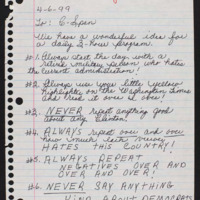 4-6-99
To: C-Span
We have a wonderful idea for
a daily 2-hour program.
#1. Always start the day with a
retired military person who hates
the current administration!
#2. Always use your little yellow
highlights on the Washington Times
and read it over & over!
#3. NEVER repeat anything good
about any Clinton!
#4. ALWAYS repeat over and over
how
HATES THIS COUNTRY!
#5. ALWAYS REPEAT
NEGATIVES OVER AND
OVER AND OVER!
#6. NEVER SAY ANYTHING
KIND ABOUT DEMOCRATS